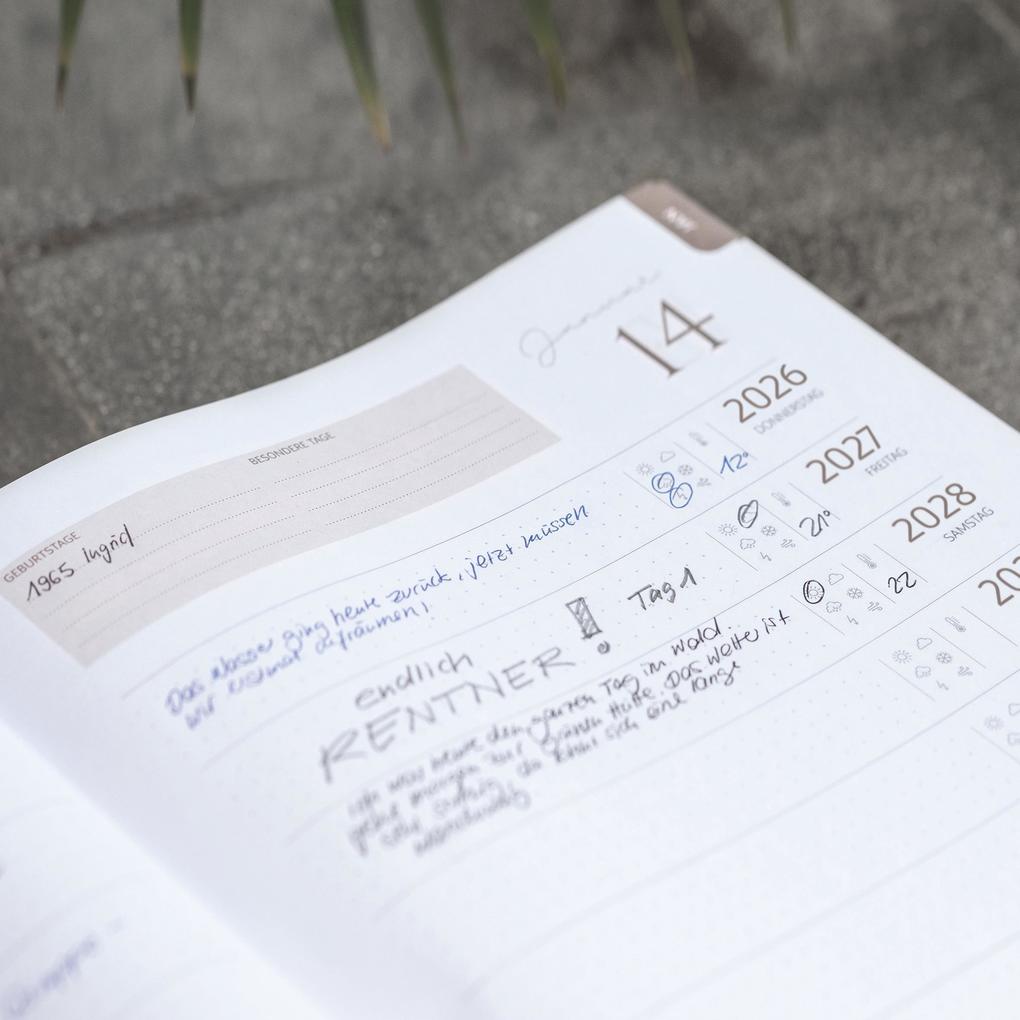 JAN
Januar
14
BESONDERE TAGE
GEBURTSTAGE
1965 Ingrid
2026
DONNERSTAG
12°
Das Wasser ging heute zurück, jetzt müssen
wir erstmal aufräumen!
2027
FREITAG
21°
endlich
RENTNER! Tag 1
2028
SAMSTAG
22
ich war heute den ganzen Tag im Wald.
geht morgen zur Grünen Hütte. Das Wette ist
sehr da sich eine lange
202